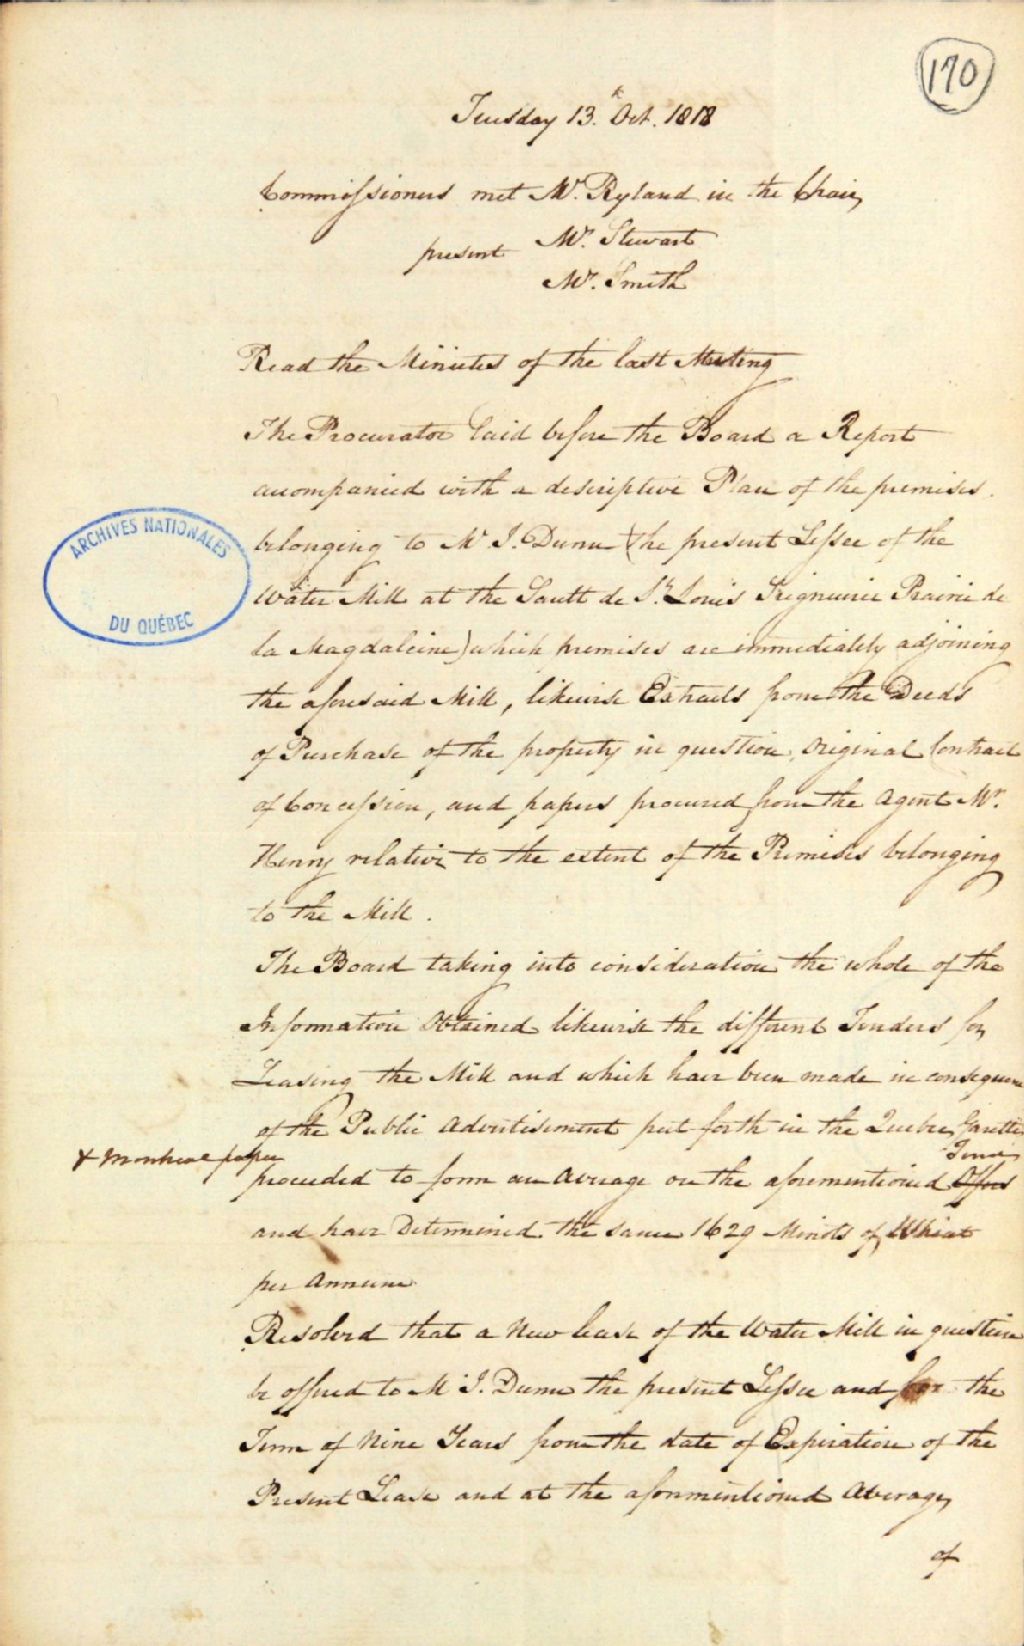 170
Tuesday 13.th Oct. 1818
Commissioners met Mr. Ryland in the Chair,
present Mr. Stewart
Mr. Smith
Read the Minutes of the last Meeting
The Procurator laid before the Board a Report
accompanied with a descriptive Plan of the premises.
belonging to Mr J. Dunn (the present Lessee of the
Water Mill at the Sault de St. Louis Seigneurie Prairie de
la Magdaleine) which premises are immediately adjoining
the aforesaid Mill, likewise Extracts from the Deeds
of Purchase of the property in question, Original Contract
of Concession, and papers procured from the Agent Mr.
Henry relative to the extent of the Premises belonging
to the Mill.
The Board taking into consideration the whole of the
Information Obtained likewise the different Tenders for
Leasing the Mill and which have been made in consequence
of the Public Advertisement put forth in the Quebec Gazette
& Montreal paper
proceeded to form an Average on the aforementioned Offers
and have Determined the same 1629 Minots of Wheat
per Annum
Resolved that a New lease of the Water Mill in question
be offered to M J. Dunn the present Lessee and for the
Term of Nine Years from the date of Expiration of the
Present Lease and at the aforementioned Average,
of
ARCHIVES NATIONALES
DU QUÉBEC